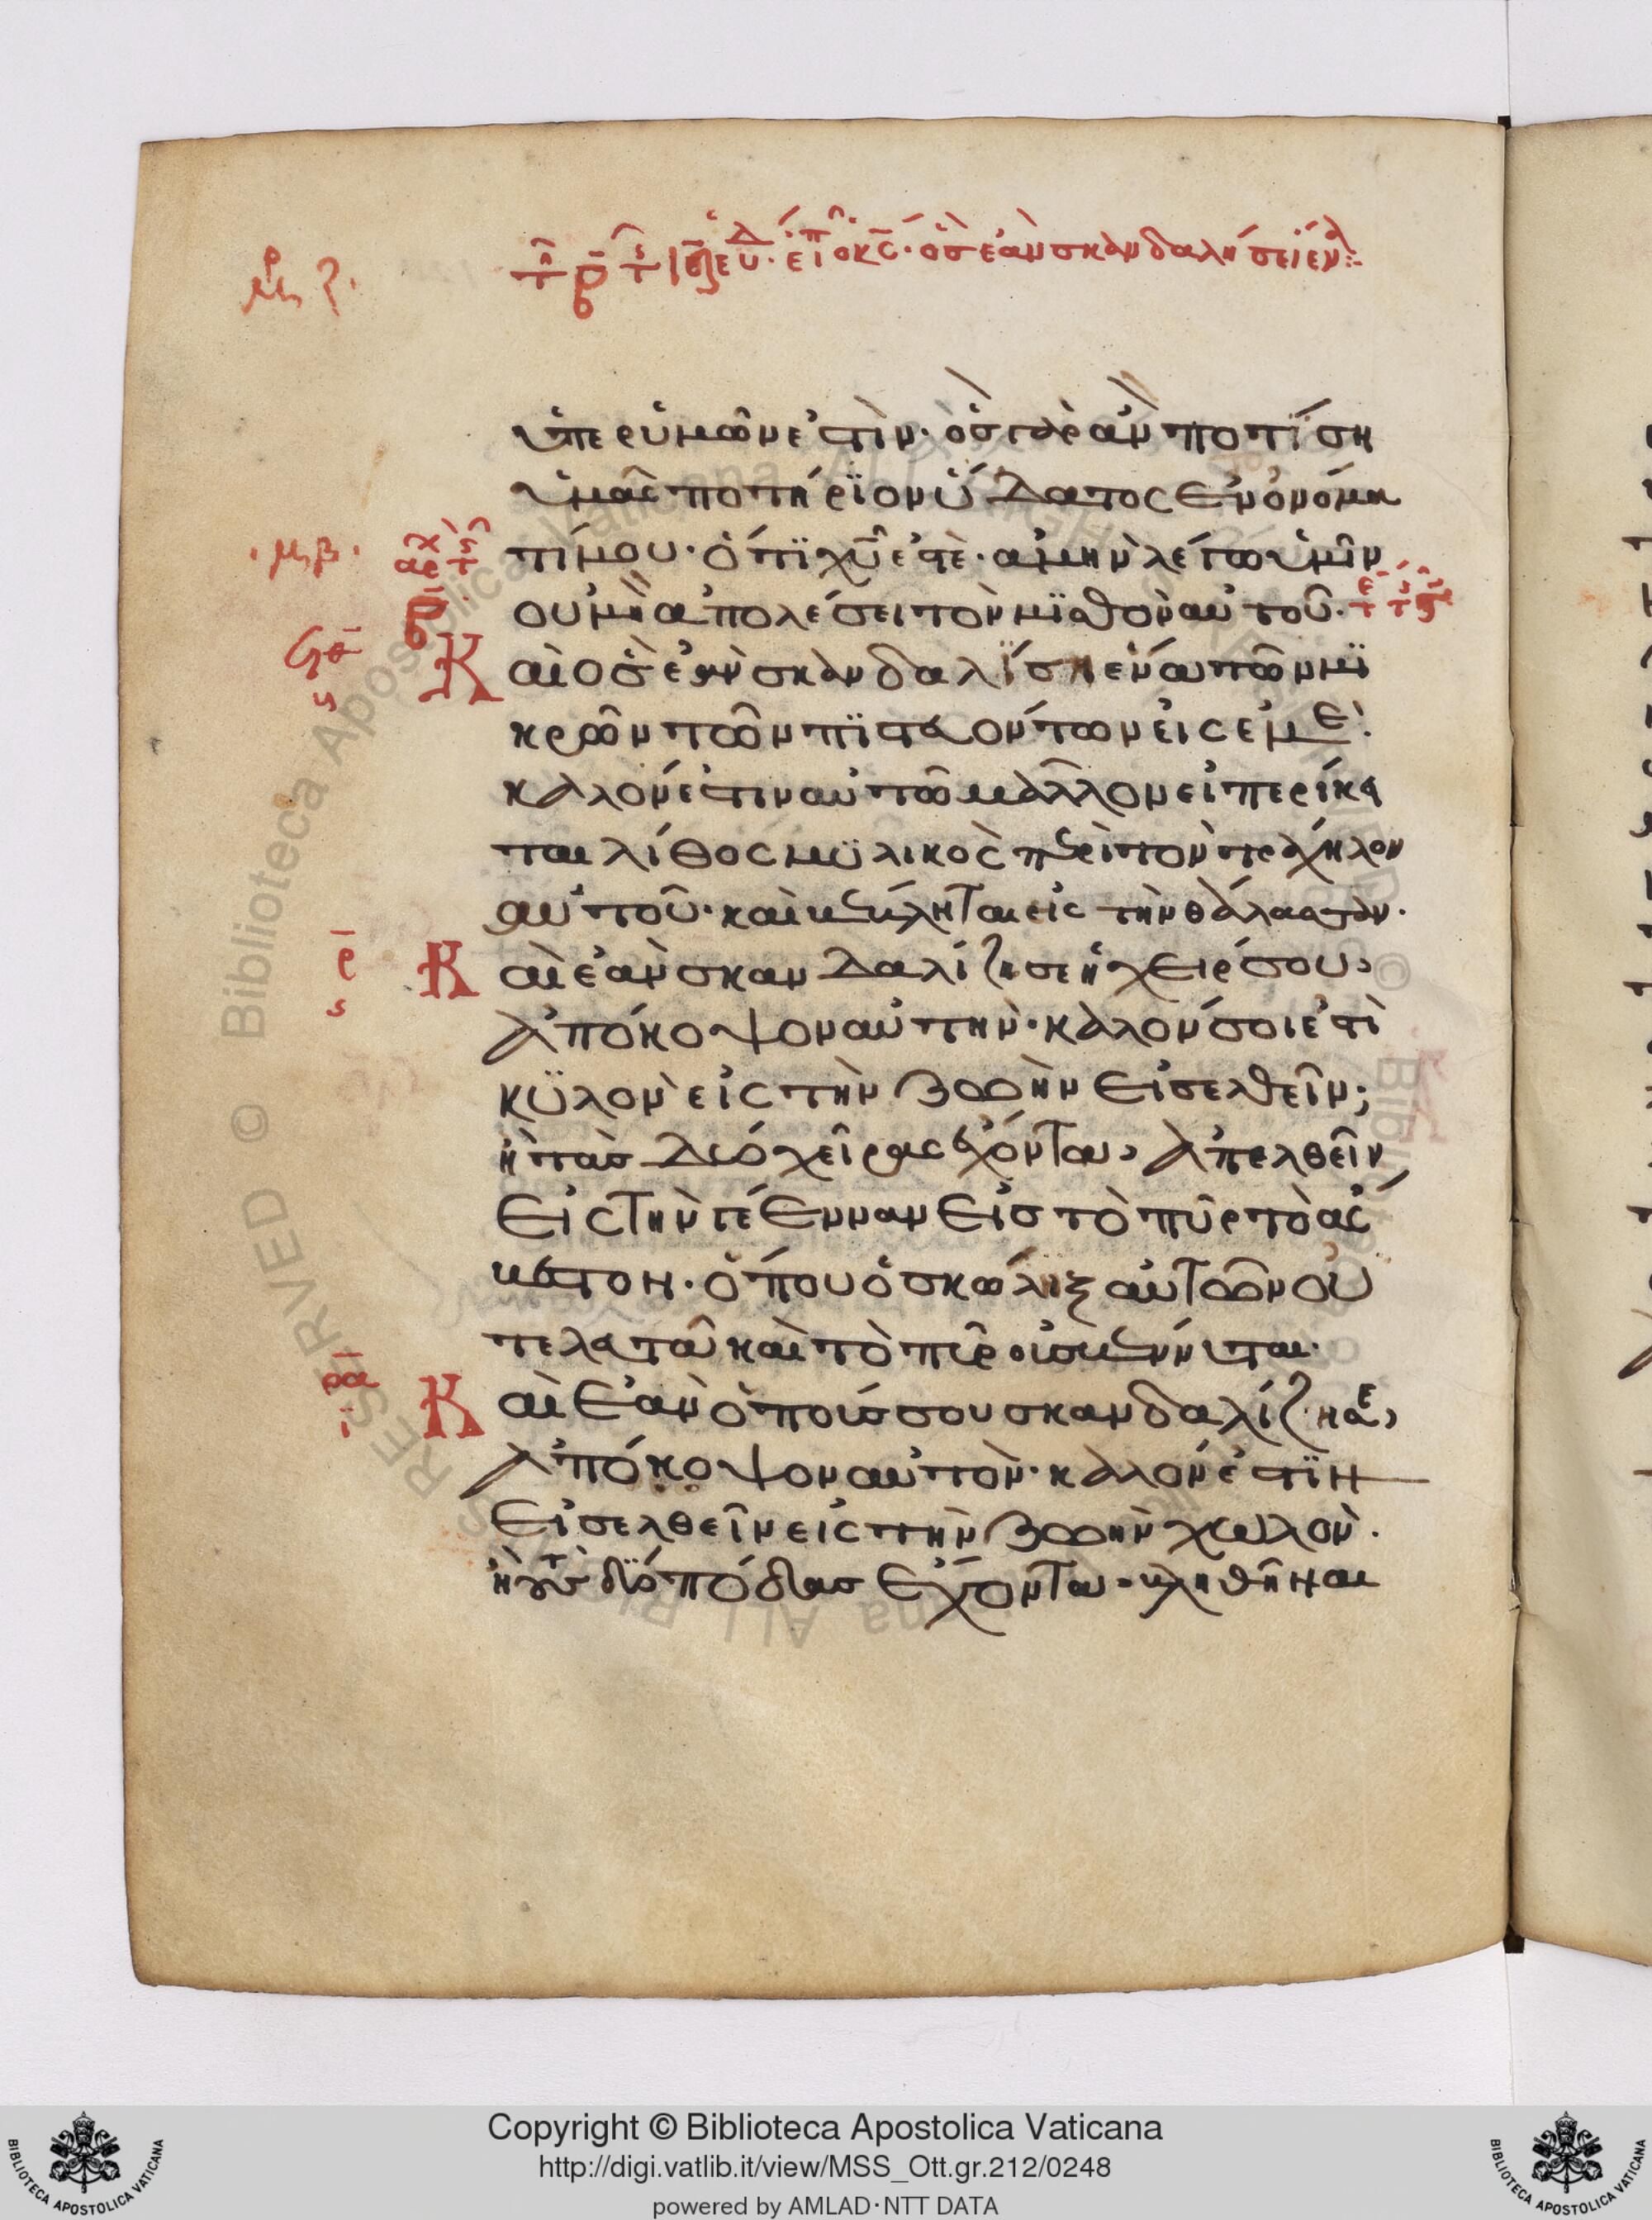 ὑπερ ὑμῶν ἐστὶν· ὃς γὰρ ἂν ποτίση
ὑμᾶς ποτήριον ὕδατος ἐν ὀνόμα
τί μου· ὅτι χῦ ἐστὲ· ἀμὴν λέγω ὑμῖν
οὐ μὴ ἀπολέσει τὸν μισθὸν αὐτοῦ·
Καὶ ὃς ἐὰν σκανδαλίση ἕνα τῶν μι
κρῶν τῶν πιστευόντων εἰς ἐμὲ·
καλόν ἐστιν αὐτῶ μᾶλλον εἰ περίκει
ται λίθος μυλικὸς περὶ τὸν τράχηλον
αὐτοῦ· καὶ βέβληται εἰς τὴν θάλασσαν·
Καὶ ἐὰν σκανδαλίζη σε ἡ χείρ σου,
ἀπόκοψον αὐτήν· καλόν σοι ἐστὶ
κυλὸν εἰς τὴν ζωὴν εἰσελθεῖν;
ἢ τὰς δύο χεῖρας ἔχοντα, ἀπελθεῖν
εἰς τὴν γέενναν εἰς τὸ πῦρ τὸ ἄσ
βεστον. ὅπου ὁ σκώληξ αὐτῶν οὐ
τελευτᾶ καὶ τὸ πῦρ οὐ σβέννυται·
Καὶ ἐὰν ὁ πούς σου σκανδαλίζη σε,
ἀπόκοψον αὐτὸν· καλόν ἐστιν
εἰσελθεῖν εἰς τὴν ζωὴν χωλὸν·
ἢ τοὺς δύο πόδας ἔχοντα· βληθῆναι
Copyright © Biblioteca Apostolica Vaticana
http://digi.vatlib.it/view/MSS_Ott.gr.212/0248
powered by AMLAD·NTT DATA
BIBLIOTECA APOSTOLICA VATICANA
BIBLIOTECA APOSTOLICA VATICANA